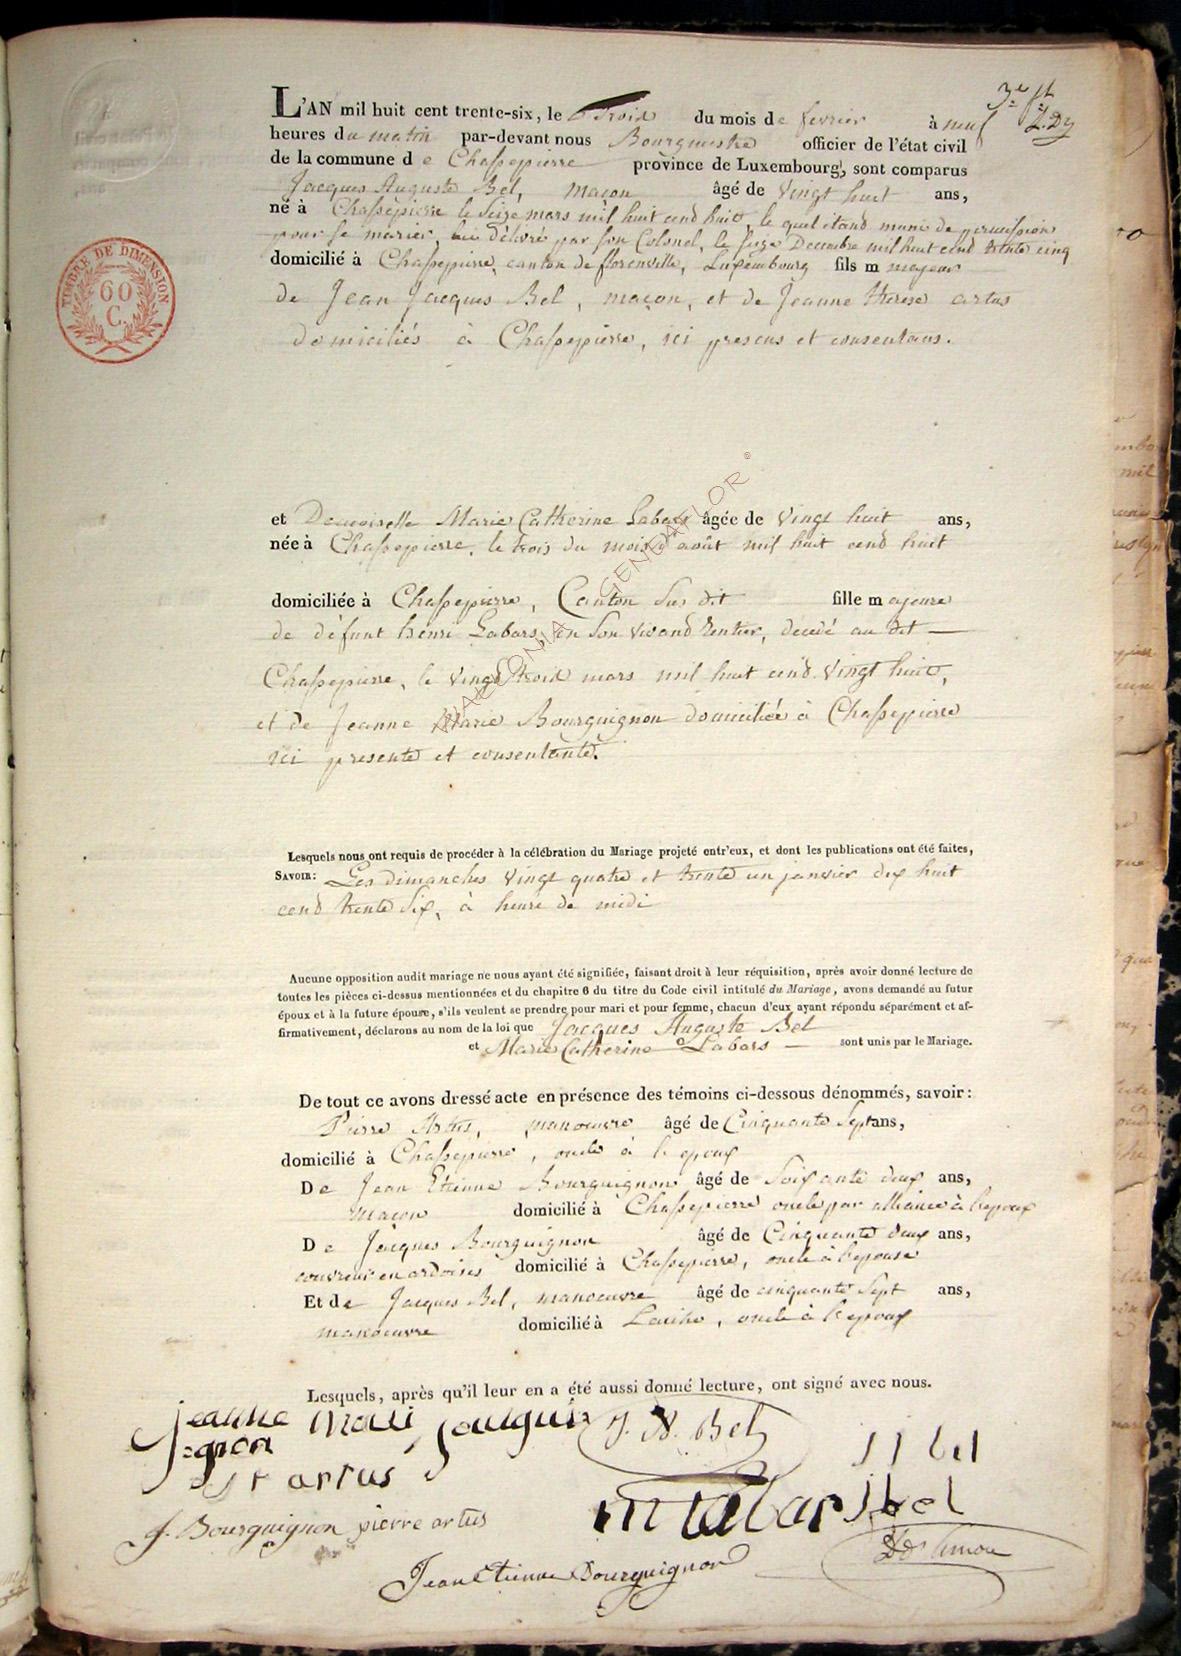 L'AN mil huit cent trente-six, le trois du mois de fevrier à neuf
heures du matin par-devant nous Bourguestre officier de l'état civil
de la commune de Chassepierre province de Luxembourg, sont comparus
Jacques Auguste Bel, maçon âgé de vingt huit ans,
né à Chassepierre le seize mars mil huit cend huit, le quel étand muni de permission
pour se marier, lui délivré par son Colonel, le seize Decembre mil huit cend trente cinq
domicilié à Chassepierre, canton de florenville, Luxembourg fils majeur
de Jean Jacques Bel, maçon, et de Jeanne therese artus
domiciliés à Chassepierre, ici presens et consentans.
et Demoiselle Marie Catherine Labars âgée de vingt huit ans,
née à Chassepierre, le trois du mois d'août mil huit cend huit
domiciliée à Chassepierre, Canton sus dit fille majeure
de défunt henri Labars, en son vivand rentier, décédé au dit
Chassepierre, le vingt trois mars mil huit cend vingt huit,
et de Jeanne Marie Bourguignon domiciliée à Chassepierre
ici presente et consentante.
Lesquels nous ont requis de procéder à la célébration du Mariage projeté entr'eux, et dont les publications ont été faites,
SAVOIR: Les dimanches vingt quatre et trente un janvier dix huit
cend trente six, à heure de midi
Aucune opposition audit mariage ne nous ayant été signifiée, faisant droit à leur réquisition, après avoir donné lecture de
toutes les pièces ci-dessus mentionnées et du chapitre 6 du titre du Code civil intitulé du Mariage, avons demandé au futur
époux et à la future épouse, s'ils veulent se prendre pour mari et pour femme, chacun d'eux ayant répondu séparément et af-
firmativement, déclarons au nom de la loi que Jacques Auguste Bel
et Marie Catherine Labars sont unis par le Mariage.
De tout ce avons dressé acte en présence des témoins ci-dessous dénommés, savoir:
Pierre Artus, manoeuvre âgé de Cinquante sept ans,
domicilié à Chassepierre, oncle à l'epoux
De Jean Etienne Bourguignon âgé de soixante deux ans,
macon domicilié à Chassepierre oncle par alliance à l'epoux
De Jacques Bourguignon âgé de Cinquante deux ans,
couvreur en ardoises domicilié à Chassepierre, oncle à l'epouse
Et de Jacques Bel, manoeuvre âgé de cinquante sept ans,
manoeuvre domicilié à Laiche, oncle à l'epoux
Lesquels, après qu'il leur en a été aussi donné lecture, ont signé avec nous.
Jeanne Marie Bourgui
gnon
J. A. Bel
J J bel
J t artus
m c labar
J bel
J. Bourguignon pierre artus
Jean Etienne Bourguignon
TIMBRE DE DIMENSION
60
C.
WALLONIA GENDAFLOR ©